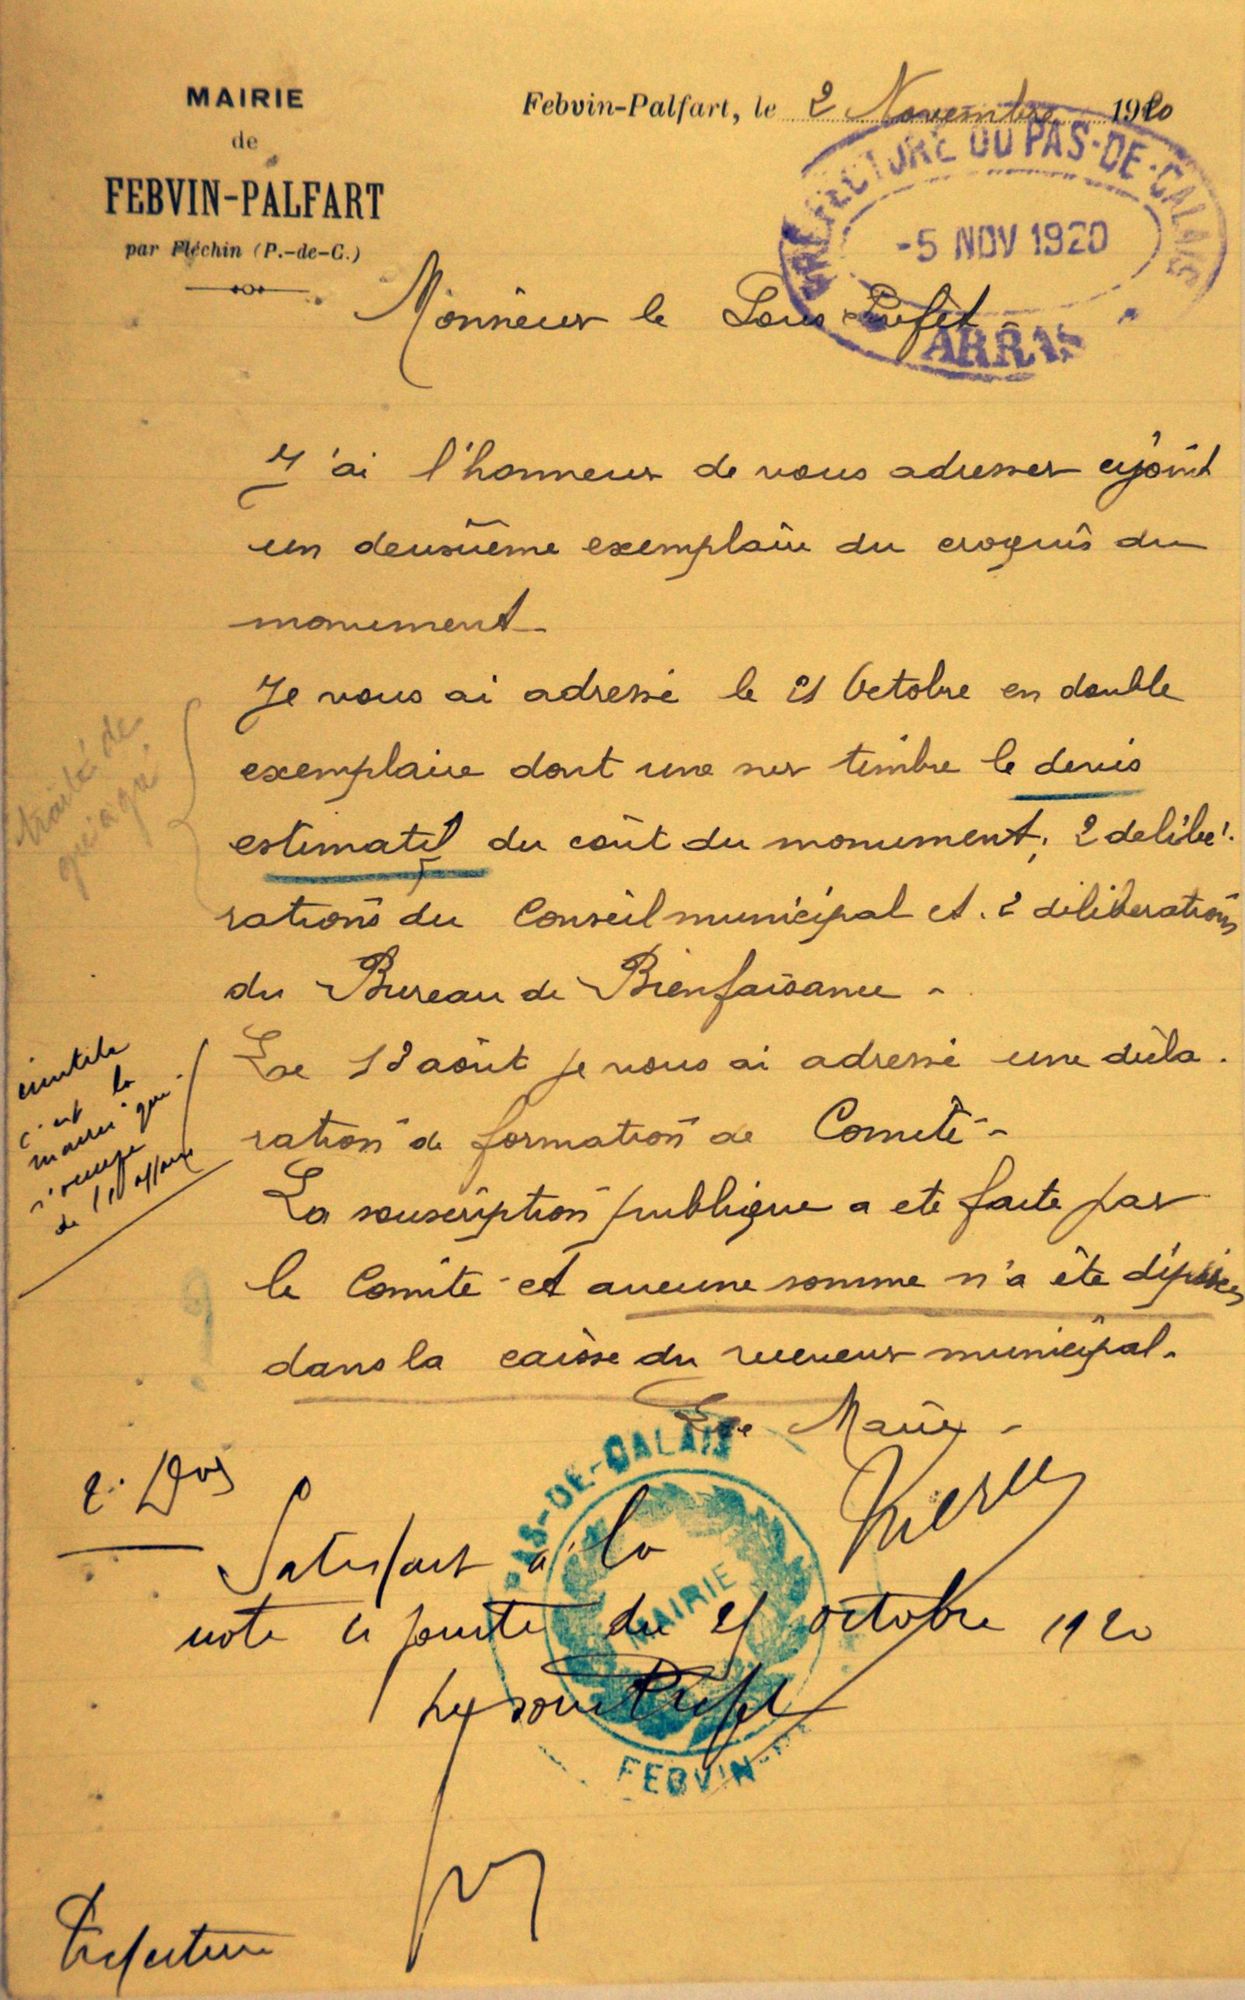 MAIRIE
de
FEBVIN-PALFART
par Fléchin (P.-de-C.)
Febvin-Palfart, le 2 Novembre 1920
PREFECTURE DU PAS-DE-CALAIS
-5 NOV 1920
ARRAS
Monsieur le Sous Préfet
J'ai l'honneur de vous adresser cijoint
un deuxième exemplaire du croquis du
monument.
Je vous ai adressé le 21 Octobre en double
exemplaire dont une sur timbre le devis
estimatif du coût du monument; 2 délibé-
rations du Conseil municipal et 2 délibérations
du Bureau de Bienfaisance -
traité de
gré à gré
Le 18 août je vous ai adressé une décla-
ration de formation de Comité -
inutile
c'est la
mairie qui
s'occupe
de l'affaire
La souscription publique a été faite par
le Comité et aucune somme n'a été déposée
dans la caisse du receveur municipal.
?
Le Maire -
PAS-DE-CALAIS
MAIRIE
FEBVIN-P
Satisfait à la
note ci jointe du octobre 1920
Le sous Préfet
Préfecture